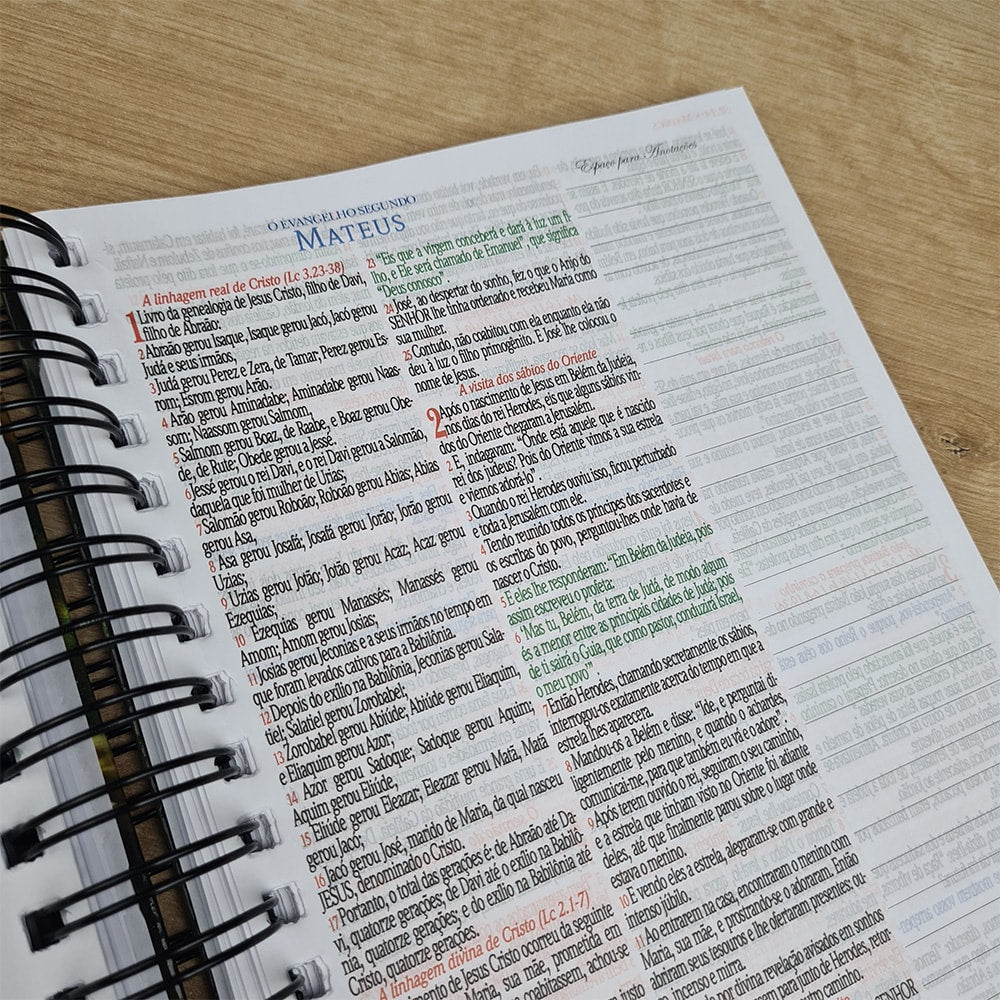 Espaço para Anotações
O EVANGELHO SEGUNDO
MATEUS
A linhagem real de Cristo (Lc 3.23-38)
1 Livro da genealogia de Jesus Cristo, filho de Davi,
filho de Abraão:
2 Abraão gerou Isaque, Isaque gerou Jacó, Jacó gerou
Judá e seus irmãos,
3 Judá gerou Perez e Zera, de Tamar, Perez gerou Es-
rom; Esrom gerou Arão.
4 Arão gerou Aminadabe, Aminadabe gerou Naas-
som; Naassom gerou Salmom,
5 Salmom gerou Boaz, de Raabe, e Boaz gerou Obe-
de, de Rute; Obede gerou a Jessé.
6 Jessé gerou o rei Davi, e o rei Davi gerou a Salomão,
daquela que foi mulher de Urias;
7 Salomão gerou Roboão; Roboão gerou Abias; Abias
gerou Asa,
8 Asa gerou Josafá; Josafá gerou Jorão; Jorão gerou
Uzias;
9 Uzias gerou Jotão; Jotão gerou Acaz, Acaz gerou
Ezequias;
10 Ezequias gerou Manassés; Manassés gerou
Amom; Amom gerou Josias;
11 Josias gerou Jeconias e a seus irmãos no tempo em
que foram levados cativos para a Babilônia.
12 Depois do exílio na Babilônia, Jeconias gerou Sala-
tiel; Salatiel gerou Zorobabel;
13 Zorobabel gerou Abiúde; Abiúde gerou Eliaquim,
e Eliaquim gerou Azor;
14 Azor gerou Sadoque; Sadoque gerou Aquim;
Aquim gerou Eliúde,
15 Eliúde gerou Eleazar, Eleazar gerou Matã, Matã
gerou Jacó;
16 Jacó gerou José, marido de Maria, da qual nasceu
JESUS, denominado o Cristo.
17 Portanto, o total das gerações é: de Abraão até Da-
vi, quatorze gerações; de Davi até o exílio na Babilô-
nia, quatorze gerações; e do exílio na Babilônia até
Cristo, quatorze gerações.
A linhagem divina de Cristo (Lc 2.1-7)
mento de Jesus Cristo ocorreu da seguinte
Maria, sua mãe, prometida em
coabitassem, achou-se
justo
23 “Eis que a virgem conceberá e dará à luz um fi-
lho, e Ele será chamado de Emanuel”, que significa
“Deus conosco”.
24 José, ao despertar do sonho, fez o que o Anjo do
SENHOR lhe tinha ordenado e recebeu Maria como
sua mulher.
25 Contudo, não coabitou com ela enquanto ela não
deu à luz o filho primogênito. E José lhe colocou o
nome de Jesus.
A visita dos sábios do Oriente
2 Após o nascimento de Jesus em Belém da Judeia,
nos dias do rei Herodes, eis que alguns sábios vin-
dos do Oriente chegaram a Jerusalém.
2 E, indagavam: “Onde está aquele que é nascido
rei dos judeus? Pois do Oriente vimos a sua estrela
e viemos adorá-lo”.
3 Quando o rei Herodes ouviu isso, ficou perturbado
e toda a Jerusalém com ele.
4 Tendo reunido todos os príncipes dos sacerdotes e
os escribas do povo, perguntou-lhes onde havia de
nascer o Cristo.
5 E eles lhe responderam: “Em Belém da Judeia, pois
assim escreveu o profeta:
6 ‘Mas tu, Belém, da terra de Judá, de modo algum
és a menor entre as principais cidades de Judá; pois
de ti sairá o Guia, que como pastor, conduzirá Israel,
o meu povo’”
7 Então Herodes, chamando secretamente os sábios,
interrogou-os exatamente acerca do tempo em que a
estrela lhes aparecera.
8 Mandou-os a Belém e disse: “Ide, e perguntai di-
ligentemente pelo menino, e quando o achardes,
comunicai-me, para que também eu vá e o adore”.
9 Após terem ouvido o rei, seguiram o seu caminho,
e a estrela que tinham visto no Oriente foi adiante
deles, até que finalmente parou sobre o lugar onde
estava o menino.
10 E vendo eles a estrela, alegraram-se com grande e
intenso júbilo.
11 Ao entrarem na casa, encontraram o menino com
Maria, sua mãe, e prostrando-se o adoraram. Então
abriram seus tesouros e lhe ofertaram presentes: ou-
ro, incenso e mirra.
por divina revelação avisados em sonhos
para junto de Herodes, retor-
outro caminho.
HOR